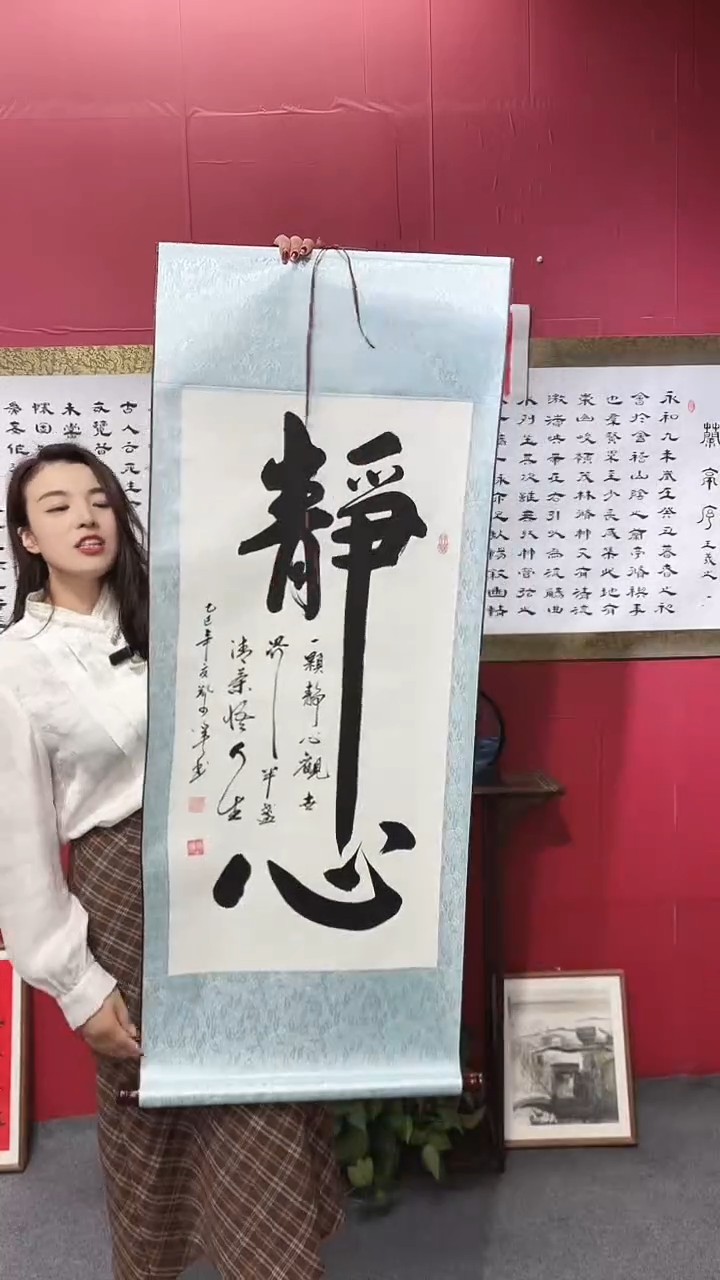 靜心
一顆靜心觀世
界半盞
清茶悟人生
蘭亭序 王羲之
永和九年歲在癸丑暮春之初
會於會稽山陰之蘭亭脩禊事
也羣賢畢至少長咸集此地有
崇山峻領茂林脩竹又有清流
激湍映帶左右引以為流觴曲
水列坐其次雖無絲竹管弦之
詠亦足以暢敘幽情
古人云死生
每覽昔
未嘗
懷固